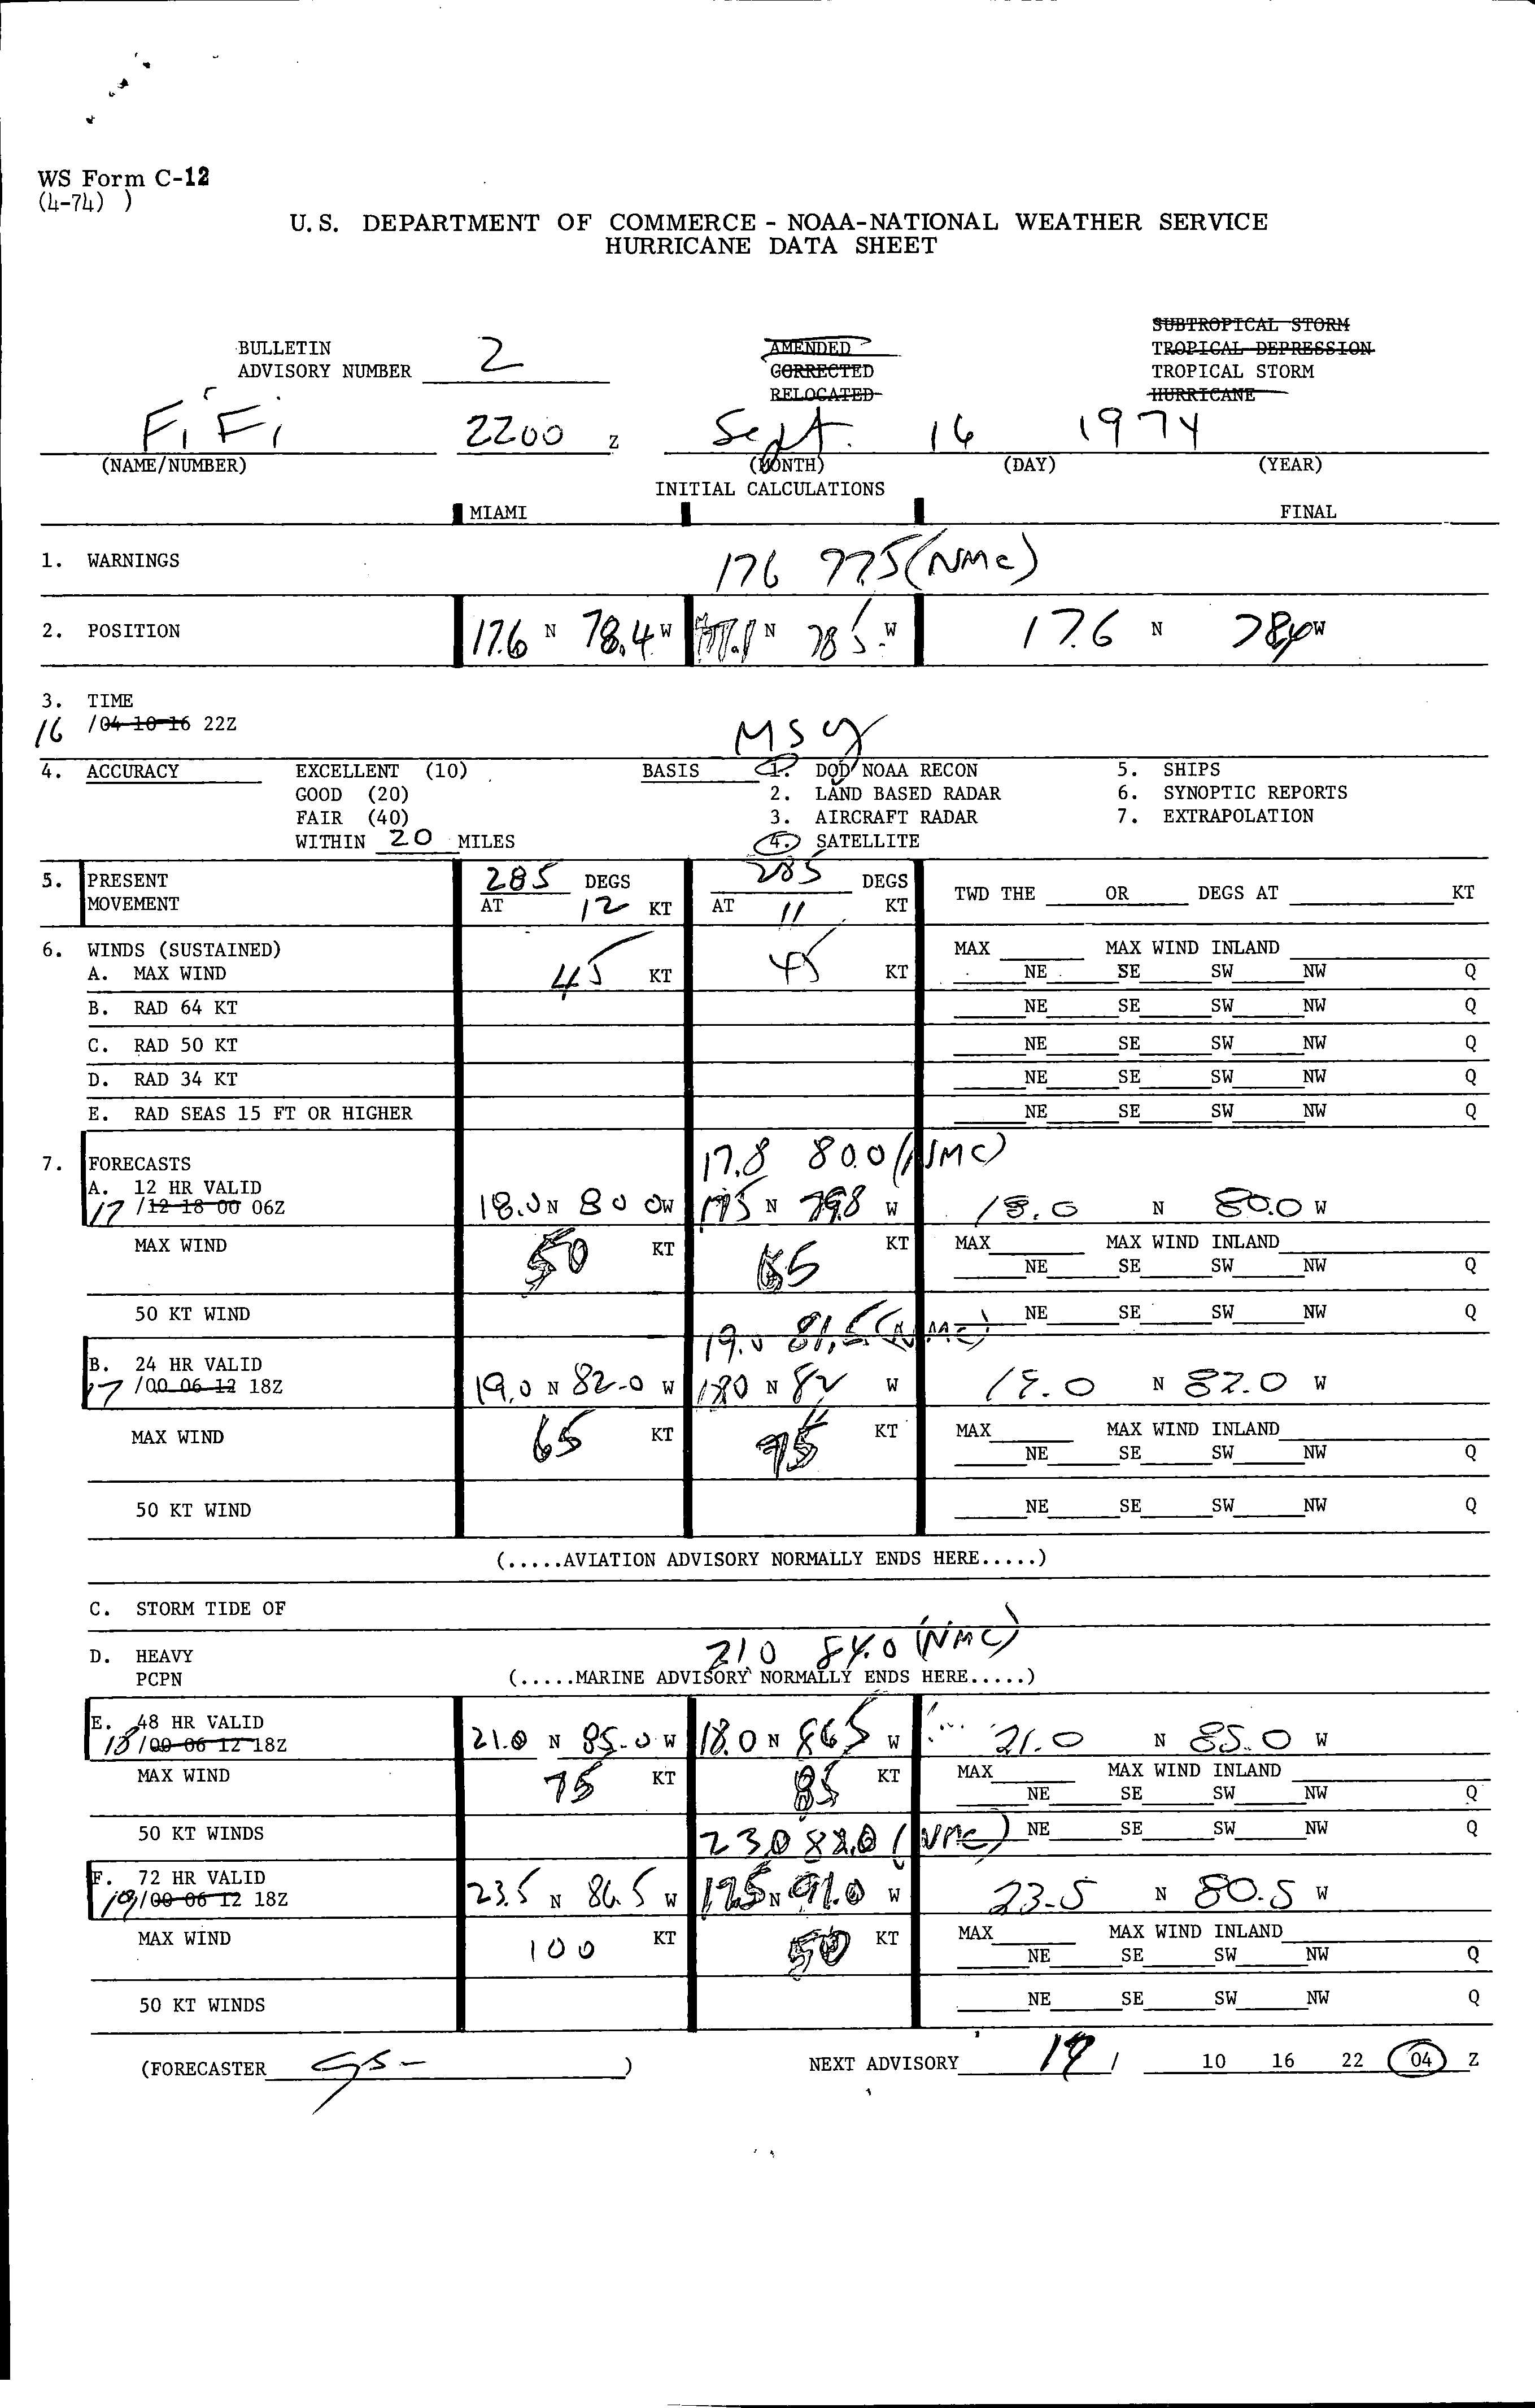 WS Form C-12
(4-74) )
U.S. DEPARTMENT OF COMMERCE - NOAA-NATIONAL WEATHER SERVICE
HURRICANE DATA SHEET
SUBTROPICAL STORM
BULLETIN AMENDED TROPICAL DEPRESSION
ADVISORY NUMBER 2 CORRECTED TROPICAL STORM
RELOCATED HURRICANE
FiFi 2200 Z Sept. 16 1974
(NAME/NUMBER) (MONTH) (DAY) (YEAR)
INITIAL CALCULATIONS
MIAMI FINAL
1. WARNINGS 176 77.5 (NMC)
2. POSITION 17.6 N 78.4 W N 78 5 W 17.6 N W
3. TIME
16 /04 10 16 22Z
MSY
4. ACCURACY EXCELLENT (10) BASIS 1. DOD NOAA RECON 5. SHIPS
GOOD (20) 2. LAND BASED RADAR 6. SYNOPTIC REPORTS
FAIR (40) 3. AIRCRAFT RADAR 7. EXTRAPOLATION
WITHIN 20 MILES 4. SATELLITE
5. PRESENT 285 DEGS 285 DEGS
MOVEMENT AT 12 KT AT 11 KT TWD THE OR DEGS AT KT
6. WINDS (SUSTAINED) MAX MAX WIND INLAND
A. MAX WIND 45 KT 45 KT NE SE SW NW Q
B. RAD 64 KT NE SE SW NW Q
C. RAD 50 KT NE SE SW NW Q
D. RAD 34 KT NE SE SW NW Q
E. RAD SEAS 15 FT OR HIGHER NE SE SW NW Q
17.8 80.0 (NMC)
7. FORECASTS
A. 12 HR VALID
17 /12 18 00 06Z 18.0 N 80 0 W 175 N 79.8 W 18.0 N 80.0 W
MAX WIND 50 KT KT MAX MAX WIND INLAND
NE SE SW NW Q
50 KT WIND NE SE SW NW Q
19.0 81.5 (NMC)
B. 24 HR VALID
17 /00 06 12 18Z 19.0 N 82.0 W 180 N 82 W 19.0 N 82.0 W
MAX WIND 65 KT 75 KT MAX MAX WIND INLAND
NE SE SW NW Q
50 KT WIND NE SE SW NW Q
(.....AVIATION ADVISORY NORMALLY ENDS HERE.....)
C. STORM TIDE OF
D. HEAVY 21.0 84.0 (NMC)
PCPN (.....MARINE ADVISORY NORMALLY ENDS HERE.....)
E. 48 HR VALID
18 /00 06 12 18Z 21.0 N 85.0 W 18.0 N 86.5 W 21.0 N 85.0 W
MAX WIND 75 KT 85 KT MAX MAX WIND INLAND
NE SE SW NW Q
50 KT WINDS 23.0 88.0 (NMC) NE SE SW NW Q
F. 72 HR VALID
19 /00 06 12 18Z 23.5 N 86.5 W N 91.0 W 23.5 N 80.5 W
MAX WIND 100 KT 50 KT MAX MAX WIND INLAND
NE SE SW NW Q
50 KT WINDS NE SE SW NW Q
(FORECASTER GS- ) NEXT ADVISORY / 10 16 22 04 Z